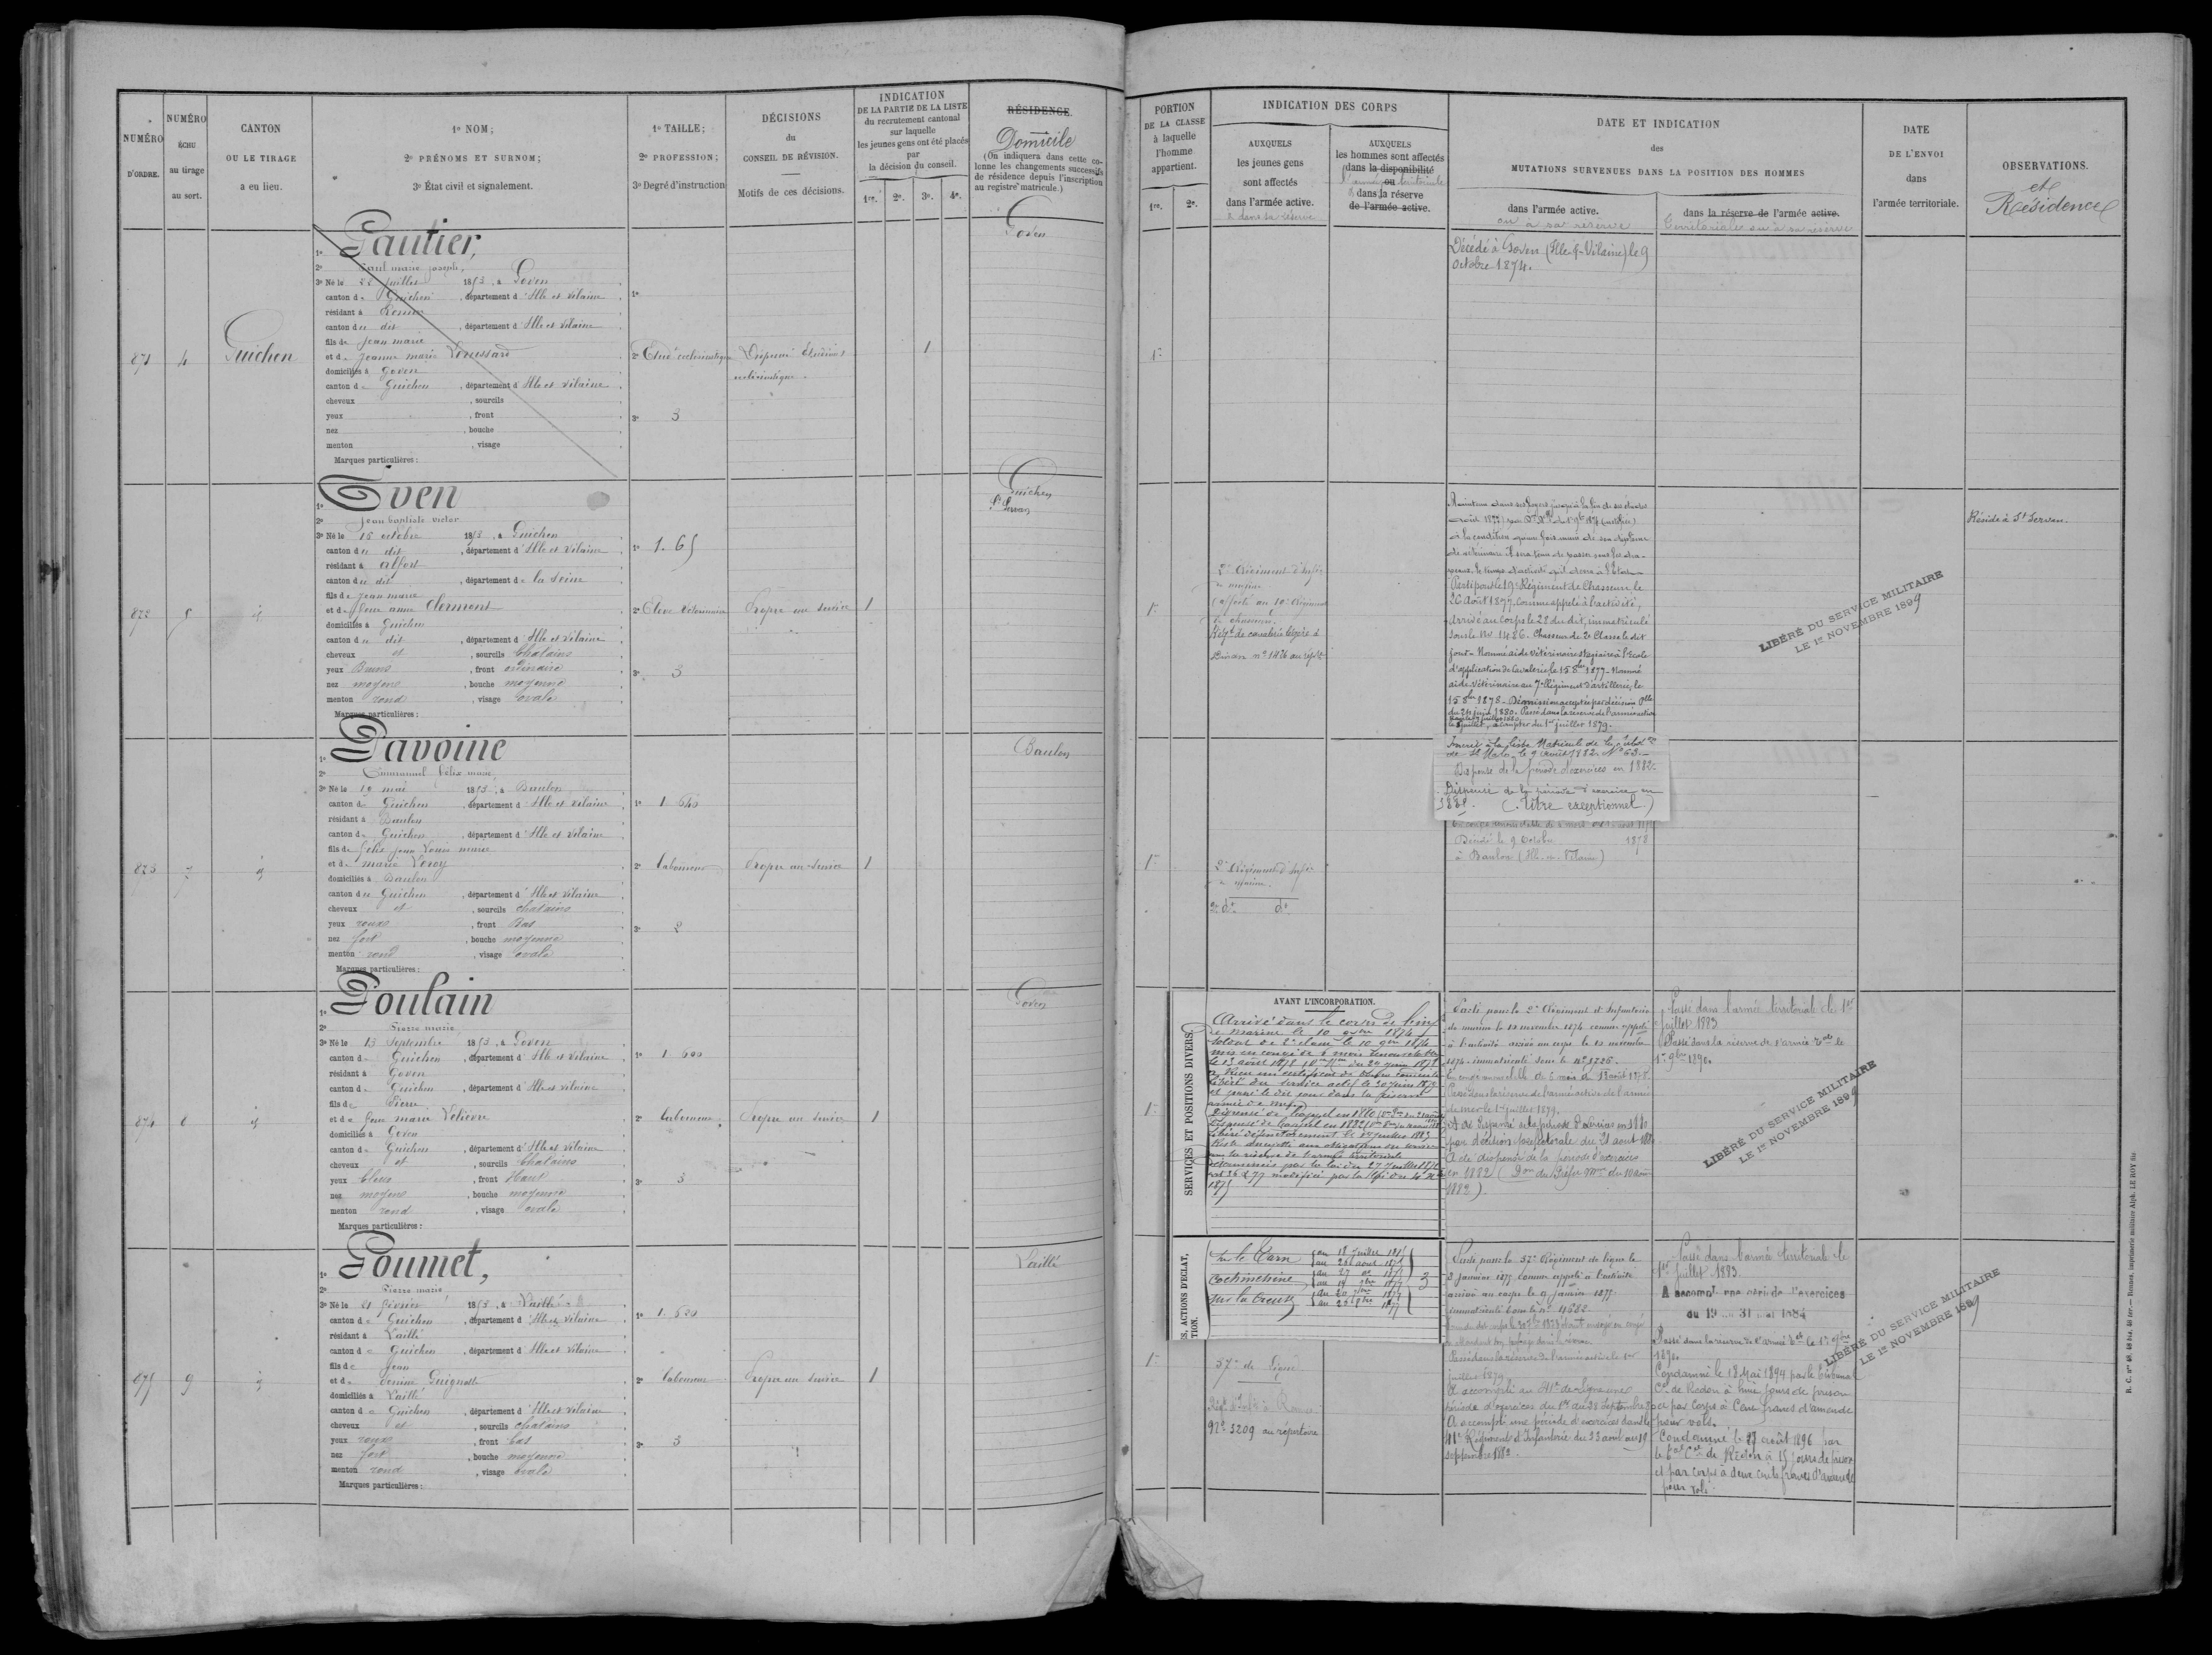 NUMÉRO
D'ORDRE.
NUMÉRO
ÉCHU
au tirage
au sort.
CANTON
OU LE TIRAGE
a eu lieu.
1º NOM;
2º PRÉNOMS ET SURNOM;
3º État civil et signalement.
1º TAILLE;
2º PROFESSION;
3º Degré d'instruction
DÉCISIONS
du
CONSEIL DE RÉVISION.
Motifs de ces décisions.
INDICATION
DE LA PARTIE DE LA LISTE
du recrutement cantonal
sur laquelle
les jeunes gens ont été placés
par
la décision du conseil.
1re. 2e. 3e. 4e.
RÉSIDENCE.
Domicile
(On indiquera dans cette co-
lonne les changements successifs
de résidence depuis l'inscription
au registre matricule.)
871
4
Guichen
1º Gautier,
2º Paul marie joseph,
3º Né le juillet 1853, à Goven
canton de Guichen, département d'Ille et Vilaine
résidant à Rennes
canton du dit, département d'Ille et Vilaine
fils de Jean marie
et de Jeanne marie
domiciliés à Goven
canton de Guichen, département d'Ille et Vilaine
cheveux , sourcils
yeux , front
nez , bouche
menton , visage
Marques particulières :
1º
2º Etud. ecclésiastique
3º 3
Dispensé Etudiant
ecclésiastique
1
Goven
872
5
id
1º Even
2º Jean baptiste victor
3º Né le 15 octobre 1853, à Guichen
canton du dit, département d'Ille et Vilaine
résidant à Alfort
canton du dit, département de la Seine
fils de Jean marie
et de feue anne Clermont
domiciliés à Guichen
canton du dit, département d'Ille et Vilaine
cheveux et, sourcils Chatains
yeux Bruns, front ordinaire
nez moyen, bouche moyenne
menton rond, visage ovale
Marques particulières :
1º 1.65
2º Elève Vétérinaire
3º 3
Propre au service
1
Guichen
St Servan
873
7
id
1º Davoine
2º Emmanuel félix marie
3º Né le 19 mai 1853, à Baulon
canton de Guichen, département d'Ille et Vilaine
résidant à Baulon
canton de Guichen, département d'Ille et Vilaine
fils de félix jean Louis marie
et de marie Leroy
domiciliés à Baulon
canton de Guichen, département d'Ille et Vilaine
cheveux et, sourcils chatains
yeux roux, front Bas
nez fort, bouche moyenne
menton rond, visage ovale
Marques particulières :
1º 1 640
2º laboureur
3º 2
Propre au service
1
Baulon
874
8
id
1º Poulain
2º Pierre marie
3º Né le 13 Septembre 1853, à Goven
canton de Guichen, département d'Ille et Vilaine
résidant à Goven
canton de Guichen, département d'Ille et Vilaine
fils de Pierre
et de feue marie Lelièvre
domiciliés à Goven
canton de Guichen, département d'Ille et Vilaine
cheveux et, sourcils Chatains
yeux bleus, front Haut
nez moyen, bouche moyenne
menton rond, visage ovale
Marques particulières :
1º 1 600
2º laboureur
3º 3
Propre au service
1
Goven
875
9
id
1º Poumet,
2º Pierre marie
3º Né le 21 février 1853, à Laillé
canton de Guichen, département d'Ille et Vilaine
résidant à Laillé
canton de Guichen, département d'Ille et Vilaine
fils de Jean
et de
domiciliés à Laillé
canton de Guichen, département d'Ille et Vilaine
cheveux et, sourcils chatains
yeux roux, front bas
nez fort, bouche moyenne
menton rond, visage ovale
Marques particulières :
1º 1. 620
2º laboureur
3º 3
Propre au service
1
Laillé
PORTION
DE LA CLASSE
à laquelle
l'homme
appartient.
1re. 2e.
INDICATION DES CORPS
AUXQUELS
les jeunes gens
sont affectés
dans l'armée active.
& dans sa réserve
AUXQUELS
les hommes sont affectés
dans la disponibilité
ou
l'armée territoriale
& dans la réserve
de l'armée active.
DATE ET INDICATION
des
MUTATIONS SURVENUES DANS LA POSITION DES HOMMES
dans l'armée active.
ou à sa réserve
dans la réserve de l'armée active.
territoriale ou à sa réserve
DATE
DE L'ENVOI
dans
l'armée territoriale.
OBSERVATIONS.
et
Résidence
1re
Décédé à Goven (Ille-&-Vilaine) le 9
Octobre 1874.
1re
2e Régiment d'Infie
de marine
(affecté au 19e Régiment
de chasseurs.
Régt de cavalerie légère à
Dinan nº 1476 au répre
à la condition
de vétérinaire
Parti pour le 19e Régiment de Chasseurs, le
26 Août 1877, comme appelé à l'activité,
Arrivé au Corps le 28 du dit, immatriculé
sous le Nº 1486. Chasseur de 2e Classe le dit
jour - Nommé aide vétérinaire stagiaire à l'École
d'application de Cavalerie, le 15 8bre 1877 - Nommé
aide vétérinaire au 7e Régiment d'artillerie, le
15 8bre 1878 - Démission acceptée par décision Plle
du 24 juin 1880. Passé dans la réserve de l'armée active
à compter du 1er juillet 1879.
Inscrit à la liste Matricule de la subdon
de St Malo, le 9 Août 1882. Nº 63.
Dispensé de la période d'exercices en 1882
Dispensé de la période d'exercice en
(titre exceptionnel)
LIBÉRÉ DU SERVICE MILITAIRE
LE 1er NOVEMBRE 1899
Réside à St Servan.
1re
2e Régiment d'Infie
de marine.
2e dt dt
Décédé le 9 Octobre 1878
à Baulon (Ille-et-Vilaine)
1re
SERVICES ET POSITIONS DIVERS.
AVANT L'INCORPORATION.
Arrivé dans le corps de l'inf
de marine le 10 1874
Soldat de 2e classe le 10 1874
mis en congé de 6 mois renouvelable
le 13 août 1878
Libéré du service actif le 30 juin 1879
et passé le dit jour dans la réserve
armée de mer
Dispensé de l'appel en 1880
Dispensé de l'appel en 1882
Libéré définitivement le 1er juillet 1883
Reste assujetti aux obligations du service
dans la réserve de l'armée territoriale
déterminées par la loi du 27 juillet 1872
art 36 & 77 modifiée par la loi du
1875
Parti pour le 2e Régiment d'Infanterie
de marine le 10 novembre 1874 comme appelé
à l'activité arrivé au corps le 10 novembre
1874 - immatriculé sous le nº 5226.
En congé renouvelable de 6 mois le 13 août 1878.
Passé dans la réserve de l'armée active de l'armée
de mer le 1er juillet 1879.
A été dispensé de la période d'exercices en 1880
par décision préfectorale du 21 août 1880
A été dispensé de la période d'exercices
en 1882 (Don du Préfet mme du 10 août
1882).
Passé dans l'armée territoriale le 1er
juillet 1883
Passé dans la réserve de l'armée tale le
1er 9bre 1890
LIBÉRÉ DU SERVICE MILITAIRE
LE 1er NOVEMBRE 1899
S, ACTIONS D'ÉCLAT,
TION.
Sur le Tarn
Cochinchine
Sur la Creuse
3
1re
57e de Ligne
Régt d'Infie à Rennes
Nº 5209 au répertoire
Parti pour le 57e Régiment de ligne le
2 janvier 1875 comme appelé à l'activité
arrivé au corps le janvier 1875
immatriculé sous le nº 4682
Passé dans la réserve de l'armée active le 1er
juillet 1879
A accompli au 41e de Ligne une
période d'exercices du 1er au 28 Septembre
A accompli une période d'exercices dans le
41e Régiment d'Infanterie du 23 août au 19
septembre 1882.
Passé dans l'armée territoriale le
1er juillet 1883
A accompli une période d'exercices
du 19 au 31 mai 1884
Passé dans la réserve de l'armée tale le 1er 9bre
1890
Condamné le 18 Mai 1894 par le tribunal
Cel de Redon à huit jours de prison
et par corps à Cent francs d'amende
pour vols.
Condamné le 27 août 1896 par
le tal Cel de Redon à 15 jours de prison
et par corps à deux cents francs d'amende
pour vols
LIBÉRÉ DU SERVICE MILITAIRE
LE 1er NOVEMBRE 1899
Rennes, imprimerie militaire Alph. LE ROY fils